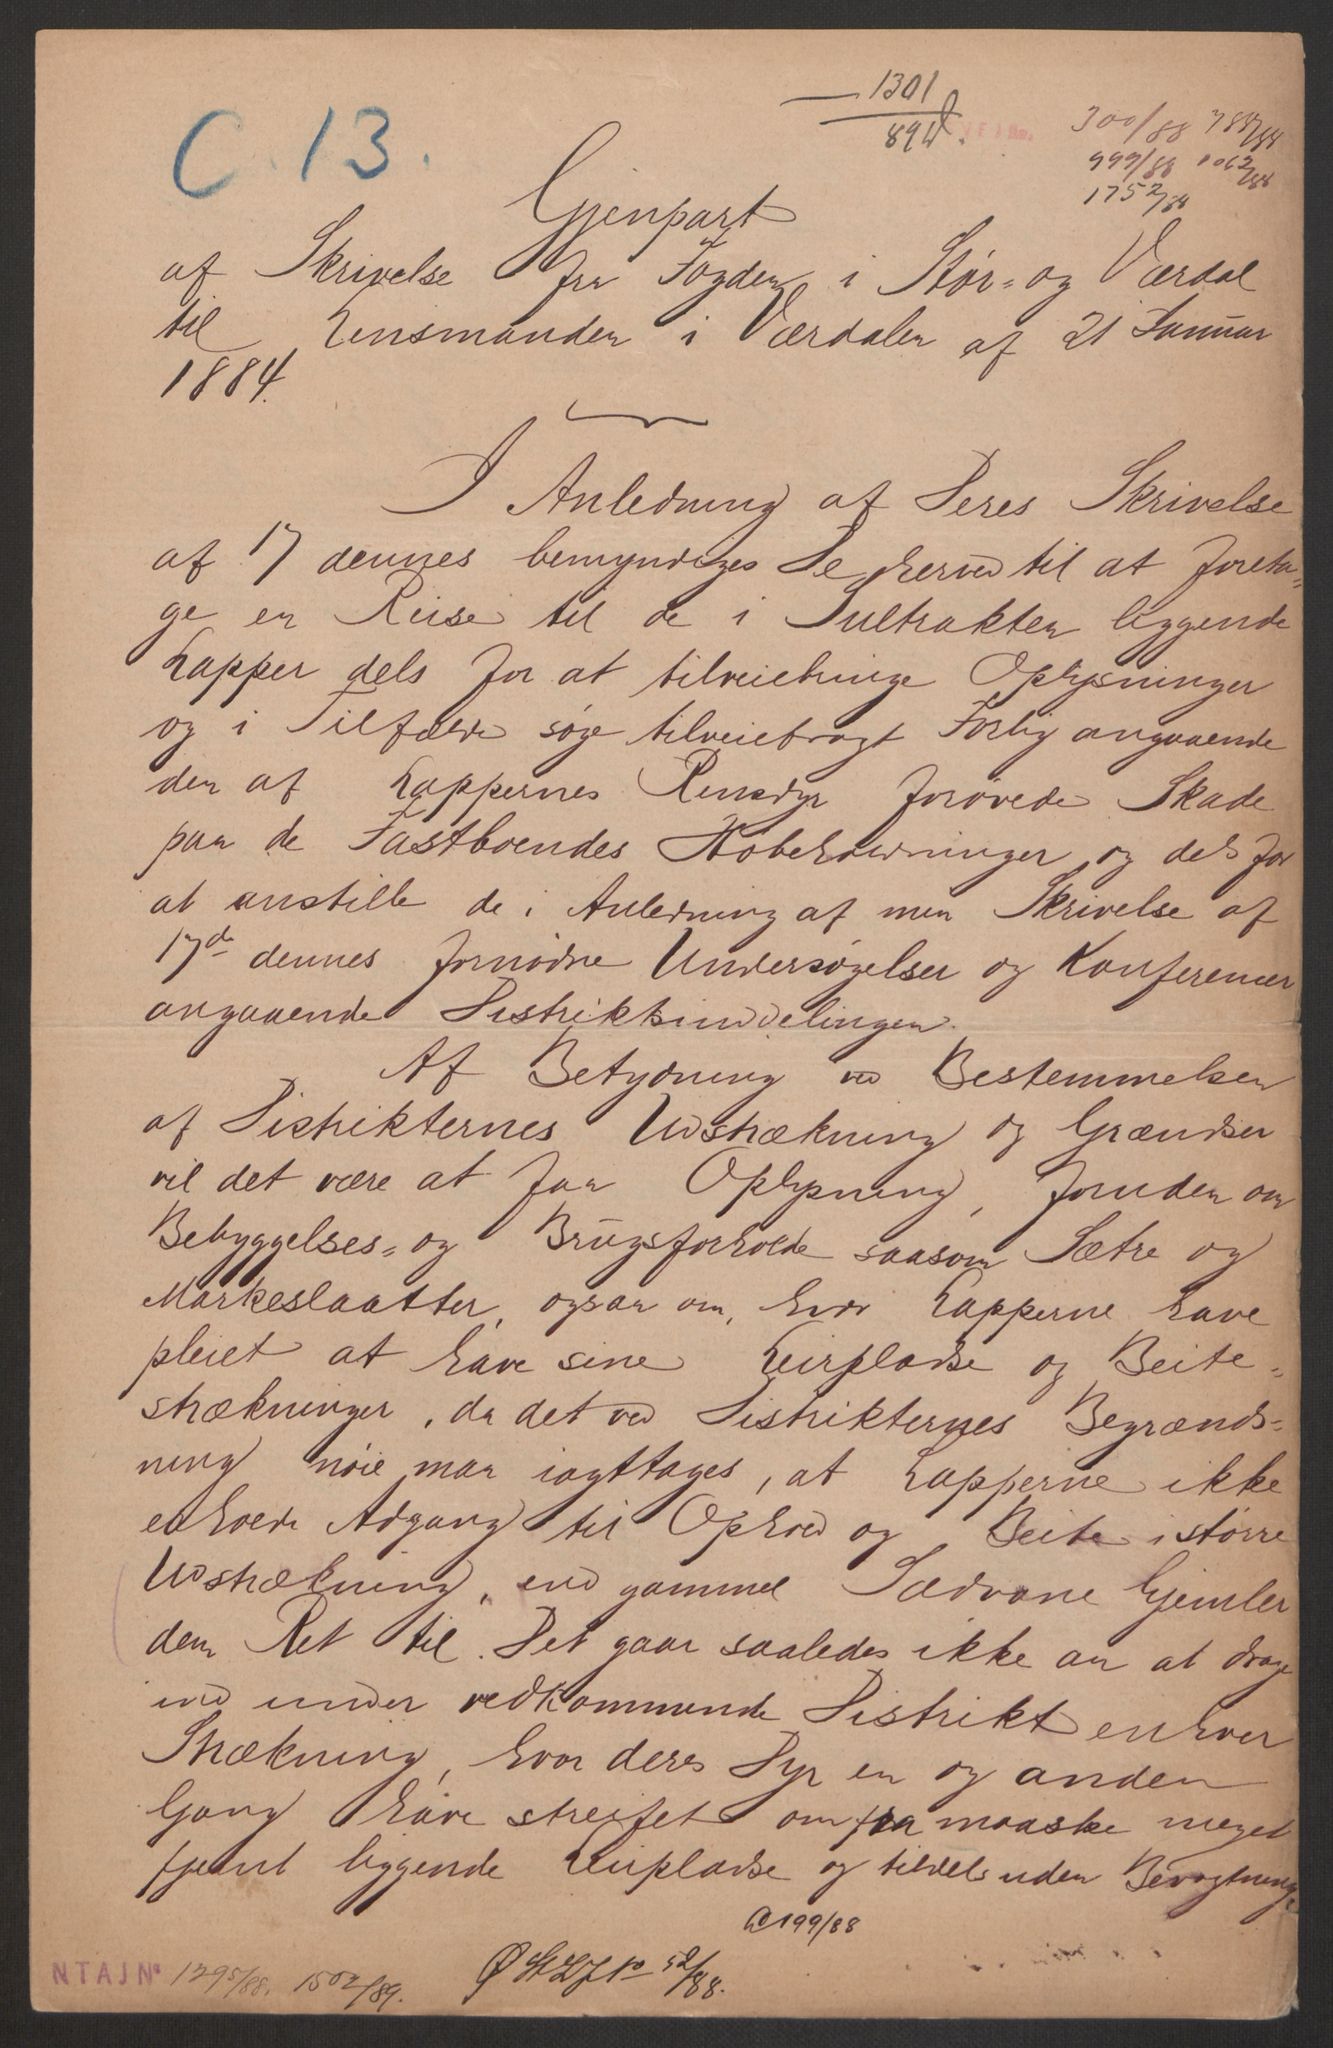 C. 13.
1301
894
300/88 788/88
999/88 1062/88
1752/88
Gjenpart
af Skrivelse fra Fogden i Stør- og Værdal
til Lensmanden i Værdalen af 21 Januar
1884.
I Anledning af Deres Skrivelse
af 17 dennes bemyndiges De herved til at foreta-
ge en Reise til de i Sultrakten liggende
Lapper dels for at tilveiebringe Oplysninger
og i Tilfælde søge tilveiebragt Forlig angaaende
den af Lappernes Rensdyr forøvede Skade
paa de Fastboendes Høbehov­ninger, og dels for
at anstille de i Anledning af min Skrivelse af
17de dennes fornødne Undersøgelser og Konferencer
angaaende Distriktsinddelingen.
Af Betydning ved Bestemmelsen
af Distrikternes Udstrækning og Grændser
vil det være at faa Oplysning, foruden om
Bebyggelses- og Brugsforholde saasom Sætre og
Markeslaatter, ogsaa om, hvor Lapperne have
pleiet at have sine Leirpladse og Beite-
strækninger, da det ved Distrikternes Begrænds-
ning nøie maa iagttages, at Lapperne ikke
erholde Adgang til Ophold og Beite i større
Udstrækning, end gammel Sædvane hjemler
dem Ret til. Det gaar saaledes ikke an at drage
ind under vedkommende Distrikt enhver
Strækning, hvor deres Dyr en og anden
Gang have streifet om fra maaske meget
fjernt liggende Leirpladse og tildels uden Bevogtning,
a 199/88
Ø St L J No 52/88.
NTAJ No 1295/88. 1502/89.